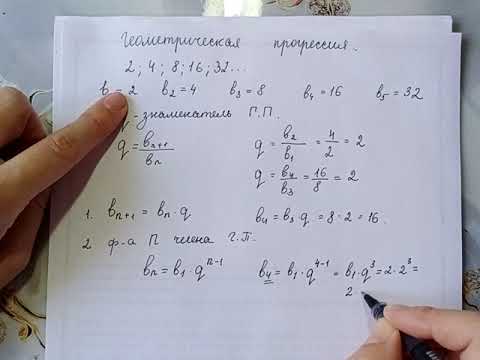 Геометрическая прогрессия.
2; 4; 8; 16; 32...
b = 2 b₂ = 4 b₃ = 8 b₄ = 16 b₅ = 32
- знаменатель Г.П.
q = bₙ₊₁/bₙ q = b₂/b₁ = 4/2 = 2
q = b₄/b₃ = 16/8 = 2
1. bₙ₊₁ = bₙ · q b₄ = b₃ · q = 8 · 2 = 16.
2 ф-а П члена Г.П.
bₙ = b₁ · qⁿ⁻¹ b₄ = b₁ · q⁴⁻¹ = b₁ · q³ = 2 · 2³ =
2